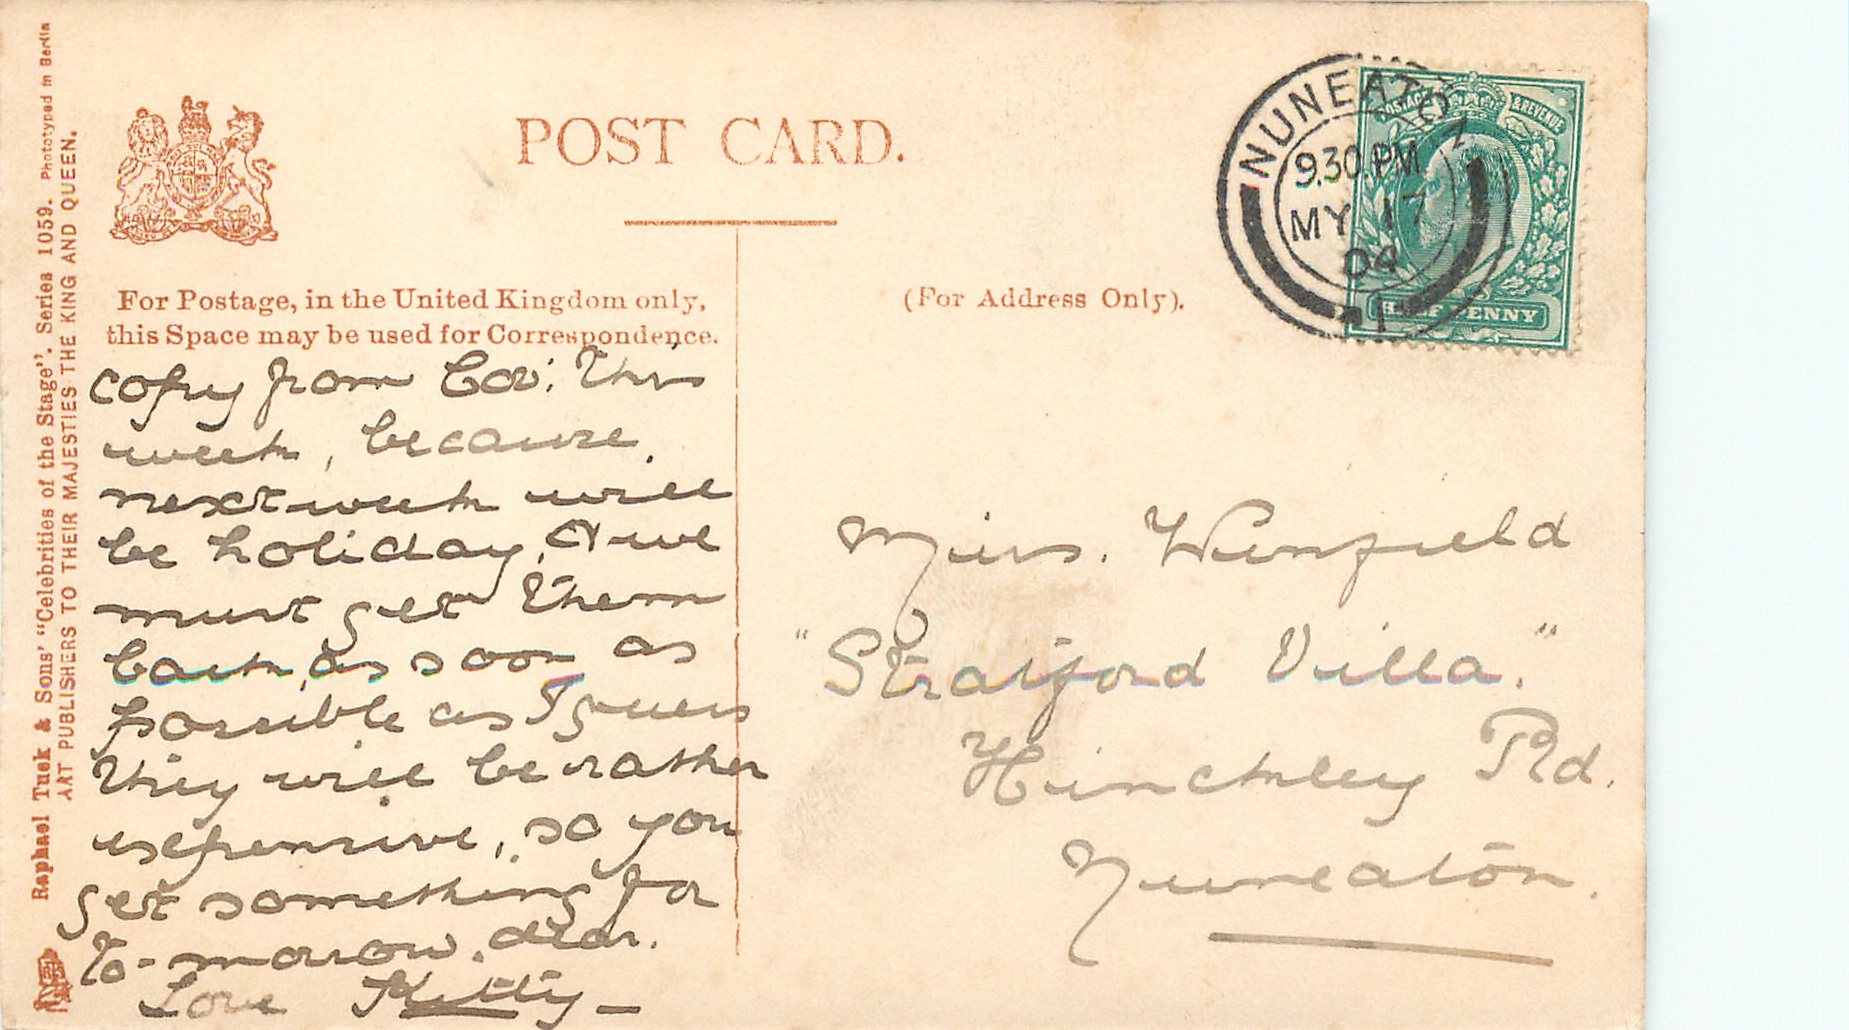 Raphael Tuck & Sons' "Celebrities of the Stage". Series 1059. Phototyped in Berlin
ART PUBLISHERS TO THEIR MAJESTIES THE KING AND QUEEN.
POST CARD.
For Postage, in the United Kingdom only,
this Space may be used for Correspondence.
(For Address Only).
NUNEATON
9.30 PM
MY 17
04
1
POSTAGE & REVENUE
HALFPENNY
copy from Cov: this
week, because
next week will
be holiday, & we
must get them
back as soon as
possible as I guess
they will be rather
expensive, so you
get something for
to-morrow. dear.
Love Kitty
Miss. Winfield
"Stratford Villa."
Hinckley Rd.
Nuneaton.